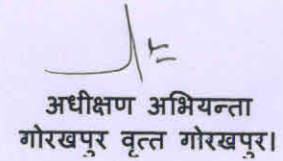 अधीक्षण अभियन्ता
गोरखपुर वृत्त गोरखपुर।